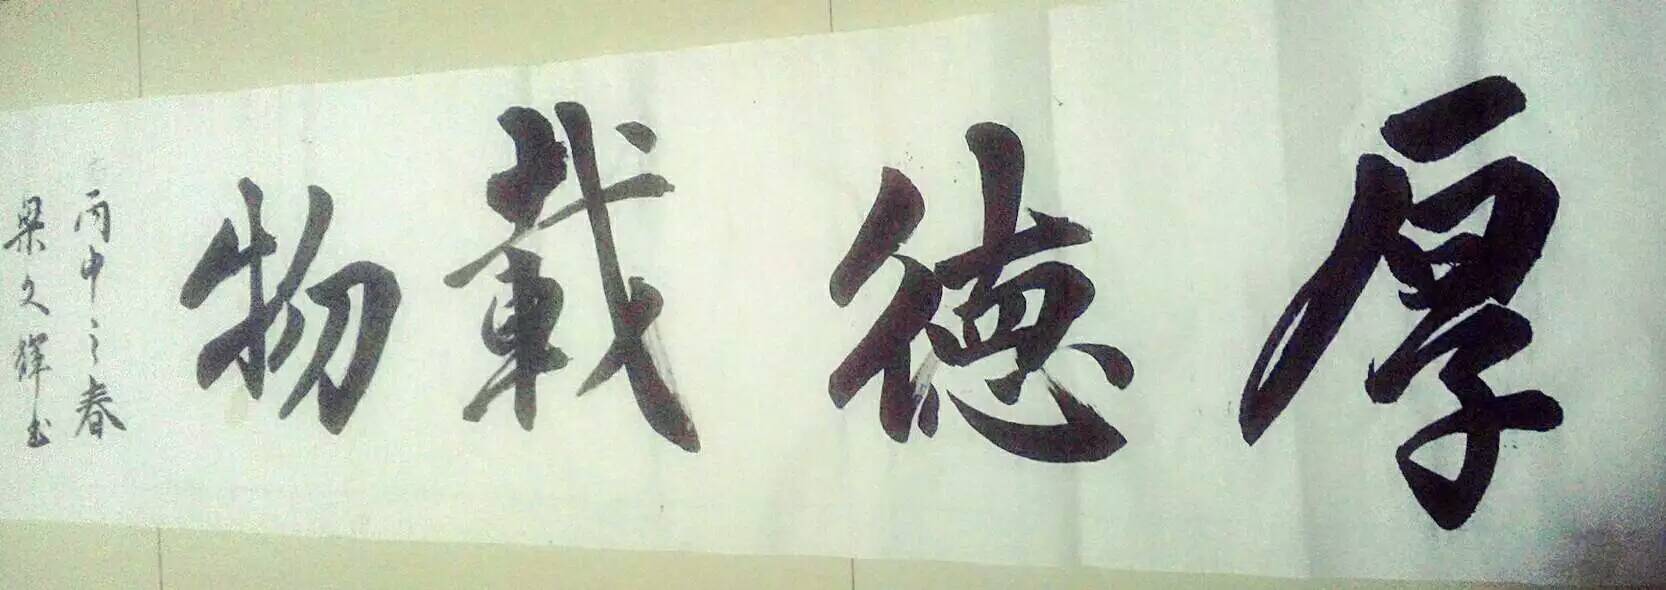 厚德載物
丙申之春
梁久輝书